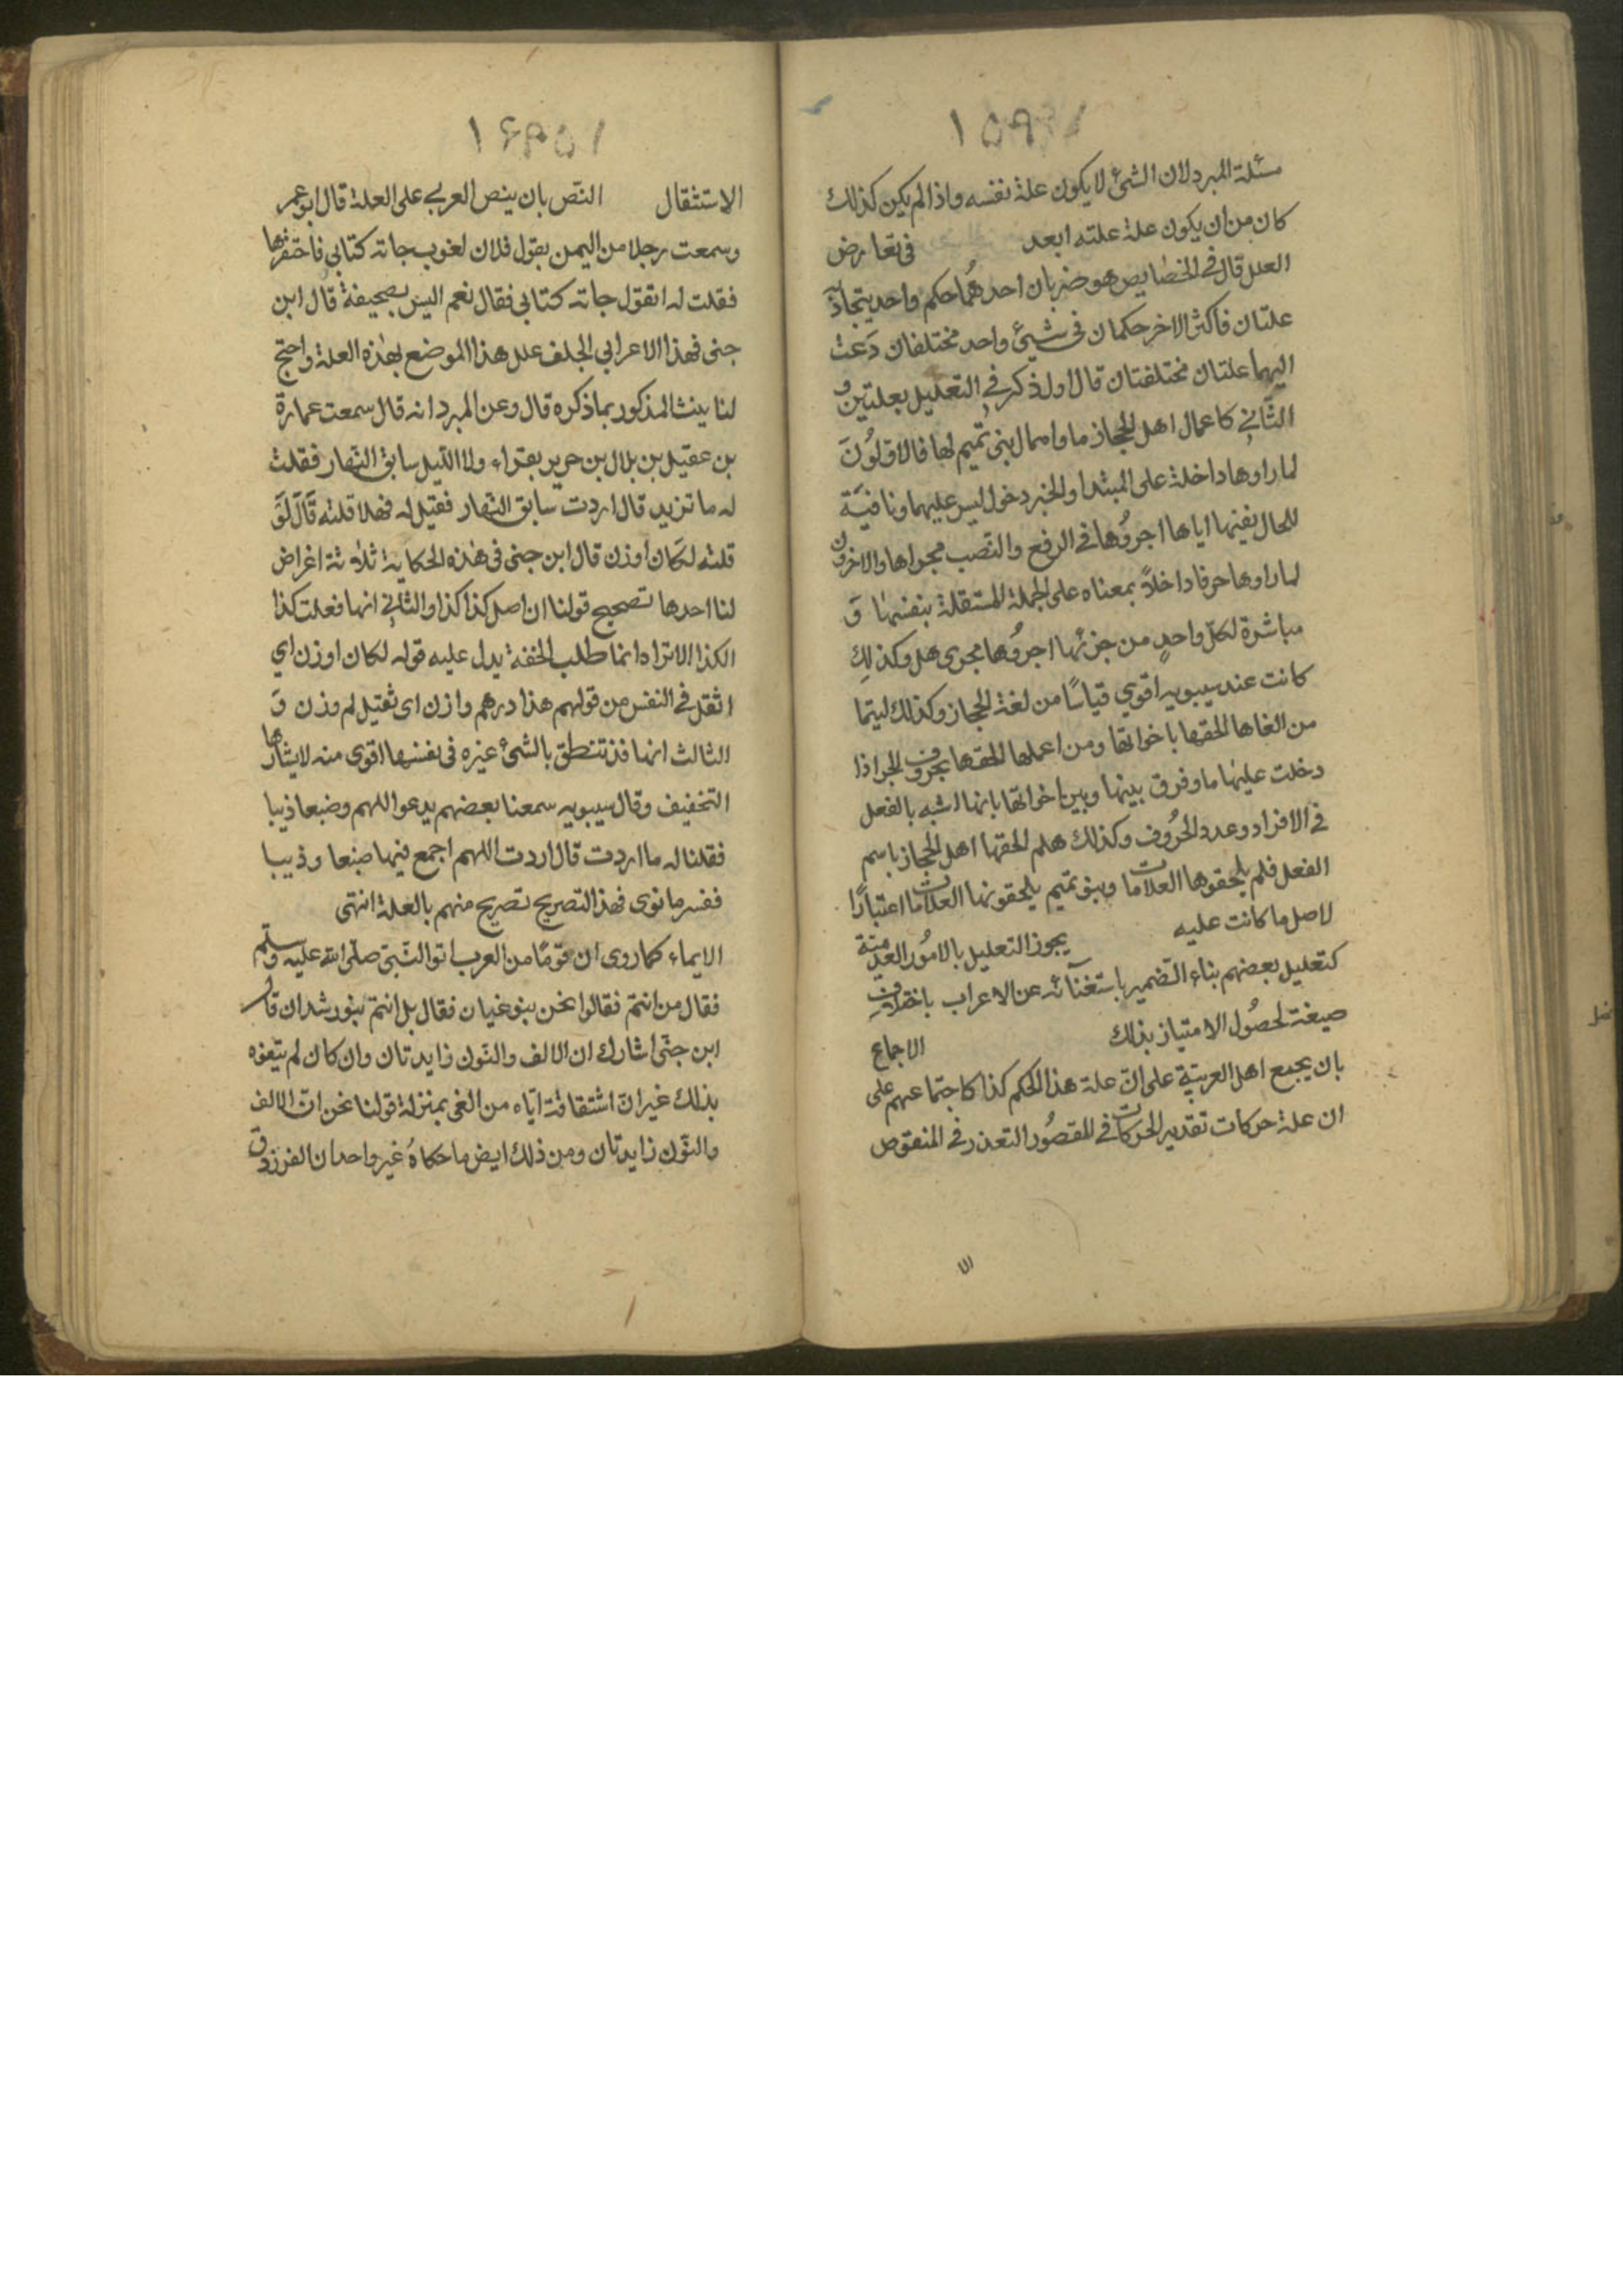 مسئلة المبرد لان الشئ لا يكون علة نفسه واذا لم يكن كذلك
كان من ان يكون علة علته ابعد في تعارض
العلل قال في الخصايص هو ضربان احدهما حكم واحد يتجاذبه
علتان فاكثر الاخر حكمان في شيئ واحد مختلفان دعت
اليهما علتان مختلفتان قال اول ذكر في التعليل بعلتين و
الثاني كاعمال اهل الحجاز ما واهمال بني تميم لها فالاولون
لما راوها داخلة على المبتدا والخبر دخول ليس عليهما ونافية
للحال نفيها اياها اجروها في الرفع والنصب مجراها والاخرون
لما راوها حرفا داخلا بمعناه على الجملة المستقلة بنفسها و
مباشرة لكل واحد من جزئها اجروها مجرى هل وكذلك
كانت عند سيبويه اقوي قياسا من لغة الحجاز وكذلك ليتما
من الغاها الحقها باخواتها ومن اعملها الحقها بحروف الجر اذا
دخلت عليها ما وفرق بينها وبين اخواتها بانها اشبه بالفعل
في الافراد وعدد الحروف وكذلك هلم الحقها اهل الحجاز باسم
الفعل فلم يلحقوها العلامات وبنو تميم يلحقونها العلامات اعتبارا
لاصل ما كانت عليه يجوز التعليل بالامور العدمية
كتعليل بعضهم بناء الضمير باستغنائه عن الاعراب باختلاف
صيغته لحصول الامتياز بذلك الاجماع
بان يجمع اهل العربية على ان علة هذا الحكم كذا كاجتماعهم على
ان علة حركات تقدير الحركات في المقصور التعذر في المنقوص
الاستثقال النص بان ينص العربي على العلة قال ابو عمر
وسمعت رجلا من اليمن يقول فلان لغوب جاته كتابي فاحتقرها
فقلت له اتقول جاته كتابي فقال نعم اليس بصحيفة قال ابن
جنى فهذا الاعرابي الجلف علل هذا الموضع بهذه العلة واحتج
لتانيث المذكور بما ذكره قال وعن المبرد انه قال سمعت عمارة
بن عقيل بن بلال بن جرير يقراء ولا الليل سابق النهار فقلت
له ما تريد قال اردت سابق النهار فقيل له فهلا قلته قال لو
قلته لكان اوزن قال ابن جنى في هذه الحكاية ثلاثة اغراض
لنا احدها تصحيح قولنا ان اصل كذا كذا والثاني انها فعلت كذا
لكذا الا تراه انما طلب الخفة يدل عليه قوله لكان اوزن اي
اثقل في النفس من قولهم هذا درهم وازن اى ثقيل له وزن و
الثالث انها قد تنطق بالشئ غيره في نفسها اقوى منه لايثارها
التخفيف وقال سيبويه سمعنا بعضهم يدعو اللهم وضبعا ذيبا
فقلنا له ما اردت قال اردت اللهم اجمع فيها ضبعا وذيبا
ففسر ما نوى فهذا التصريح تصريح منهم بالعلة انتهى
الايماء كما روى ان قوما من العرب اتو النبي صلى الله عليه وسلم
فقال من انتم فقالوا نحن بنو غيان فقال بل انتم بنو رشدان قال
ابن جنى اشار لك ان الالف والنون زايدتان وان كان لم يتفوه
بذلك غير ان اشتقاقه اياه من الغى بمنزلة قولنا نحن ان الالف
والنون زايدتان ومن ذلك ايض ما حكاه غير واحد ان الفرزدق